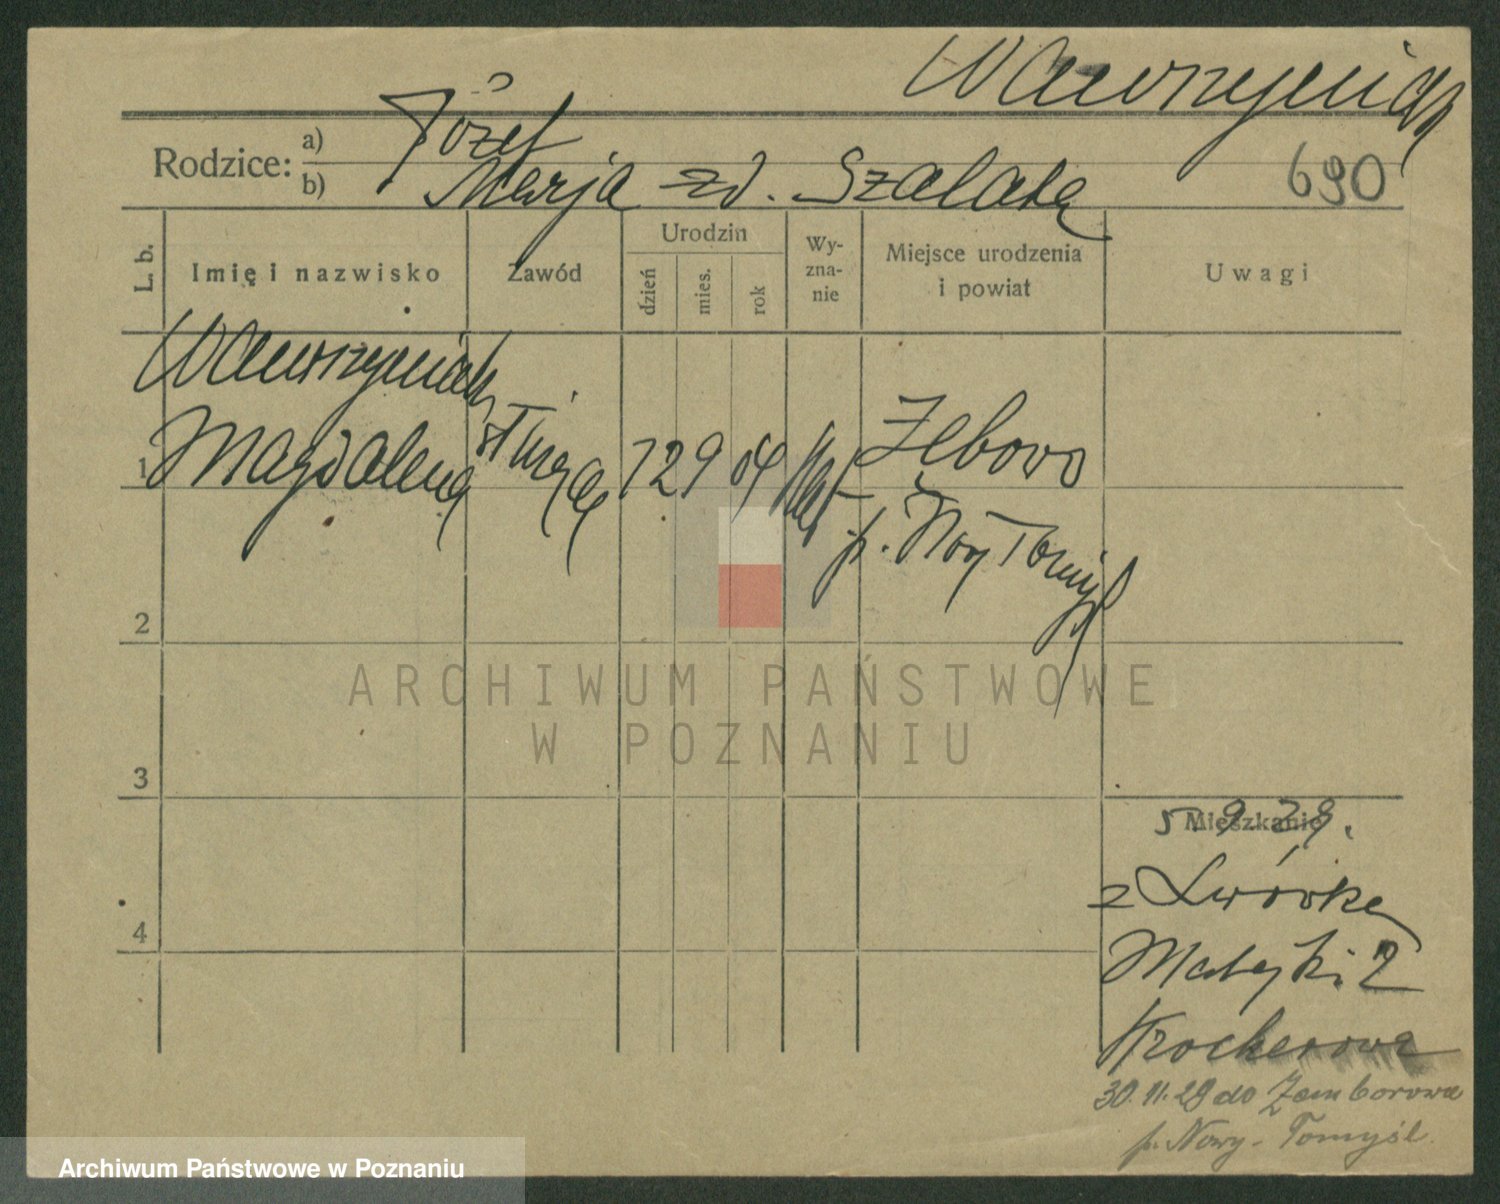 Wawrzyniak
Rodzice: a) Józef
b) Marja zd. Szalata
690
L. b.
Imię i nazwisko
Zawód
Urodzin
dzień
mies.
rok
Wy-
zna-
nie
Miejsce urodzenia
i powiat
Uwagi
Wawrzyniak
1 Magdalena
służąca
12 9 04
kat
Zębowo
p. Nowy Tomyśl
2
3
4
Mieszkanie
5.9.29.
z Lwówka
Matejki 2
30.11.29 do Zamborowa
p. Nowy-Tomyśl
ARCHIWUM PAŃSTWOWE
W POZNANIU
Archiwum Państwowe w Poznaniu